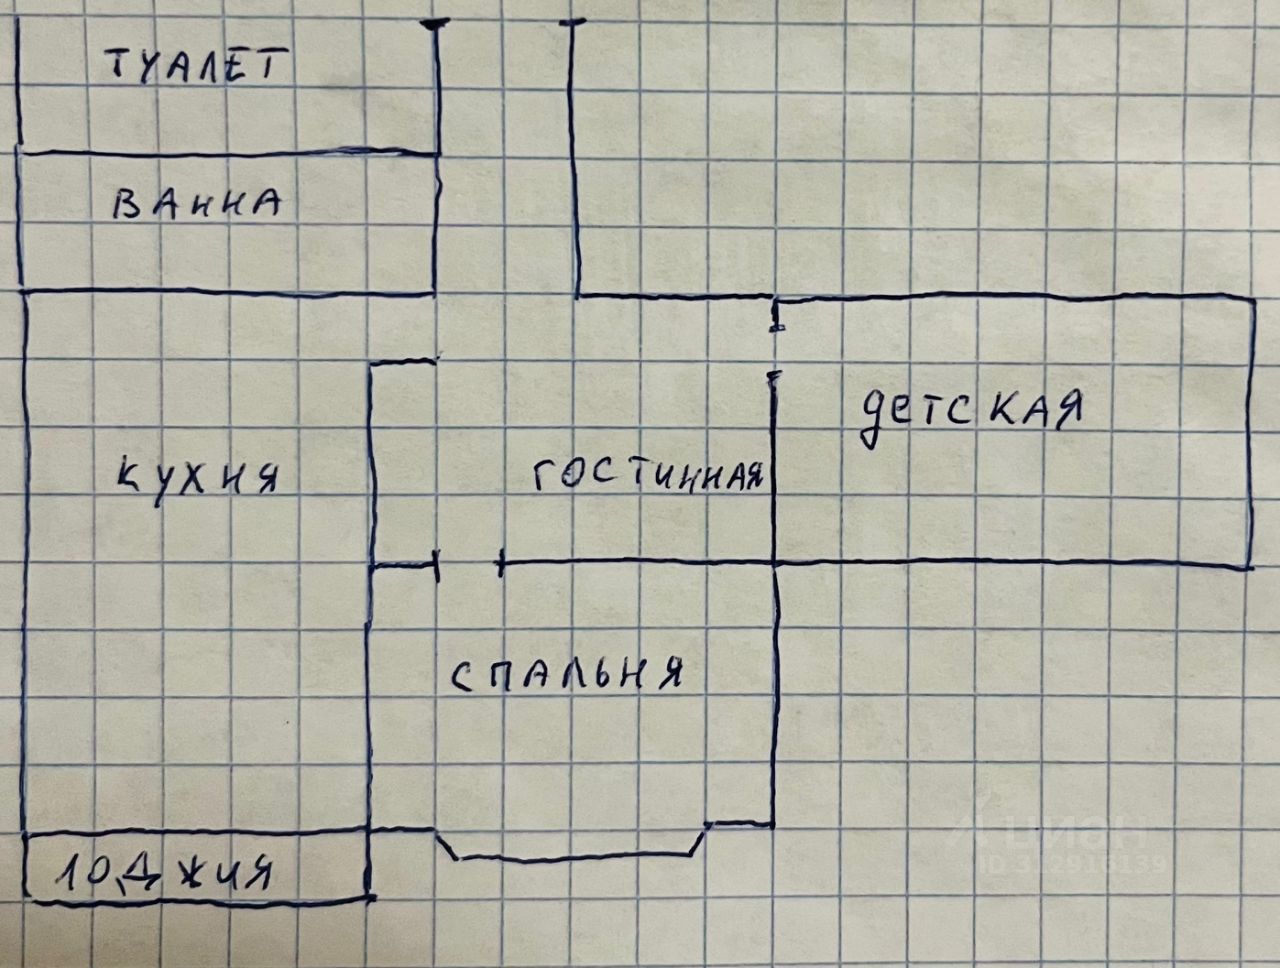 ТУАЛЕТ
ВАННА
КУХНЯ
ГОСТИННАЯ
ДЕТСКАЯ
СПАЛЬНЯ
ЛОДЖИЯ
ЦИАН